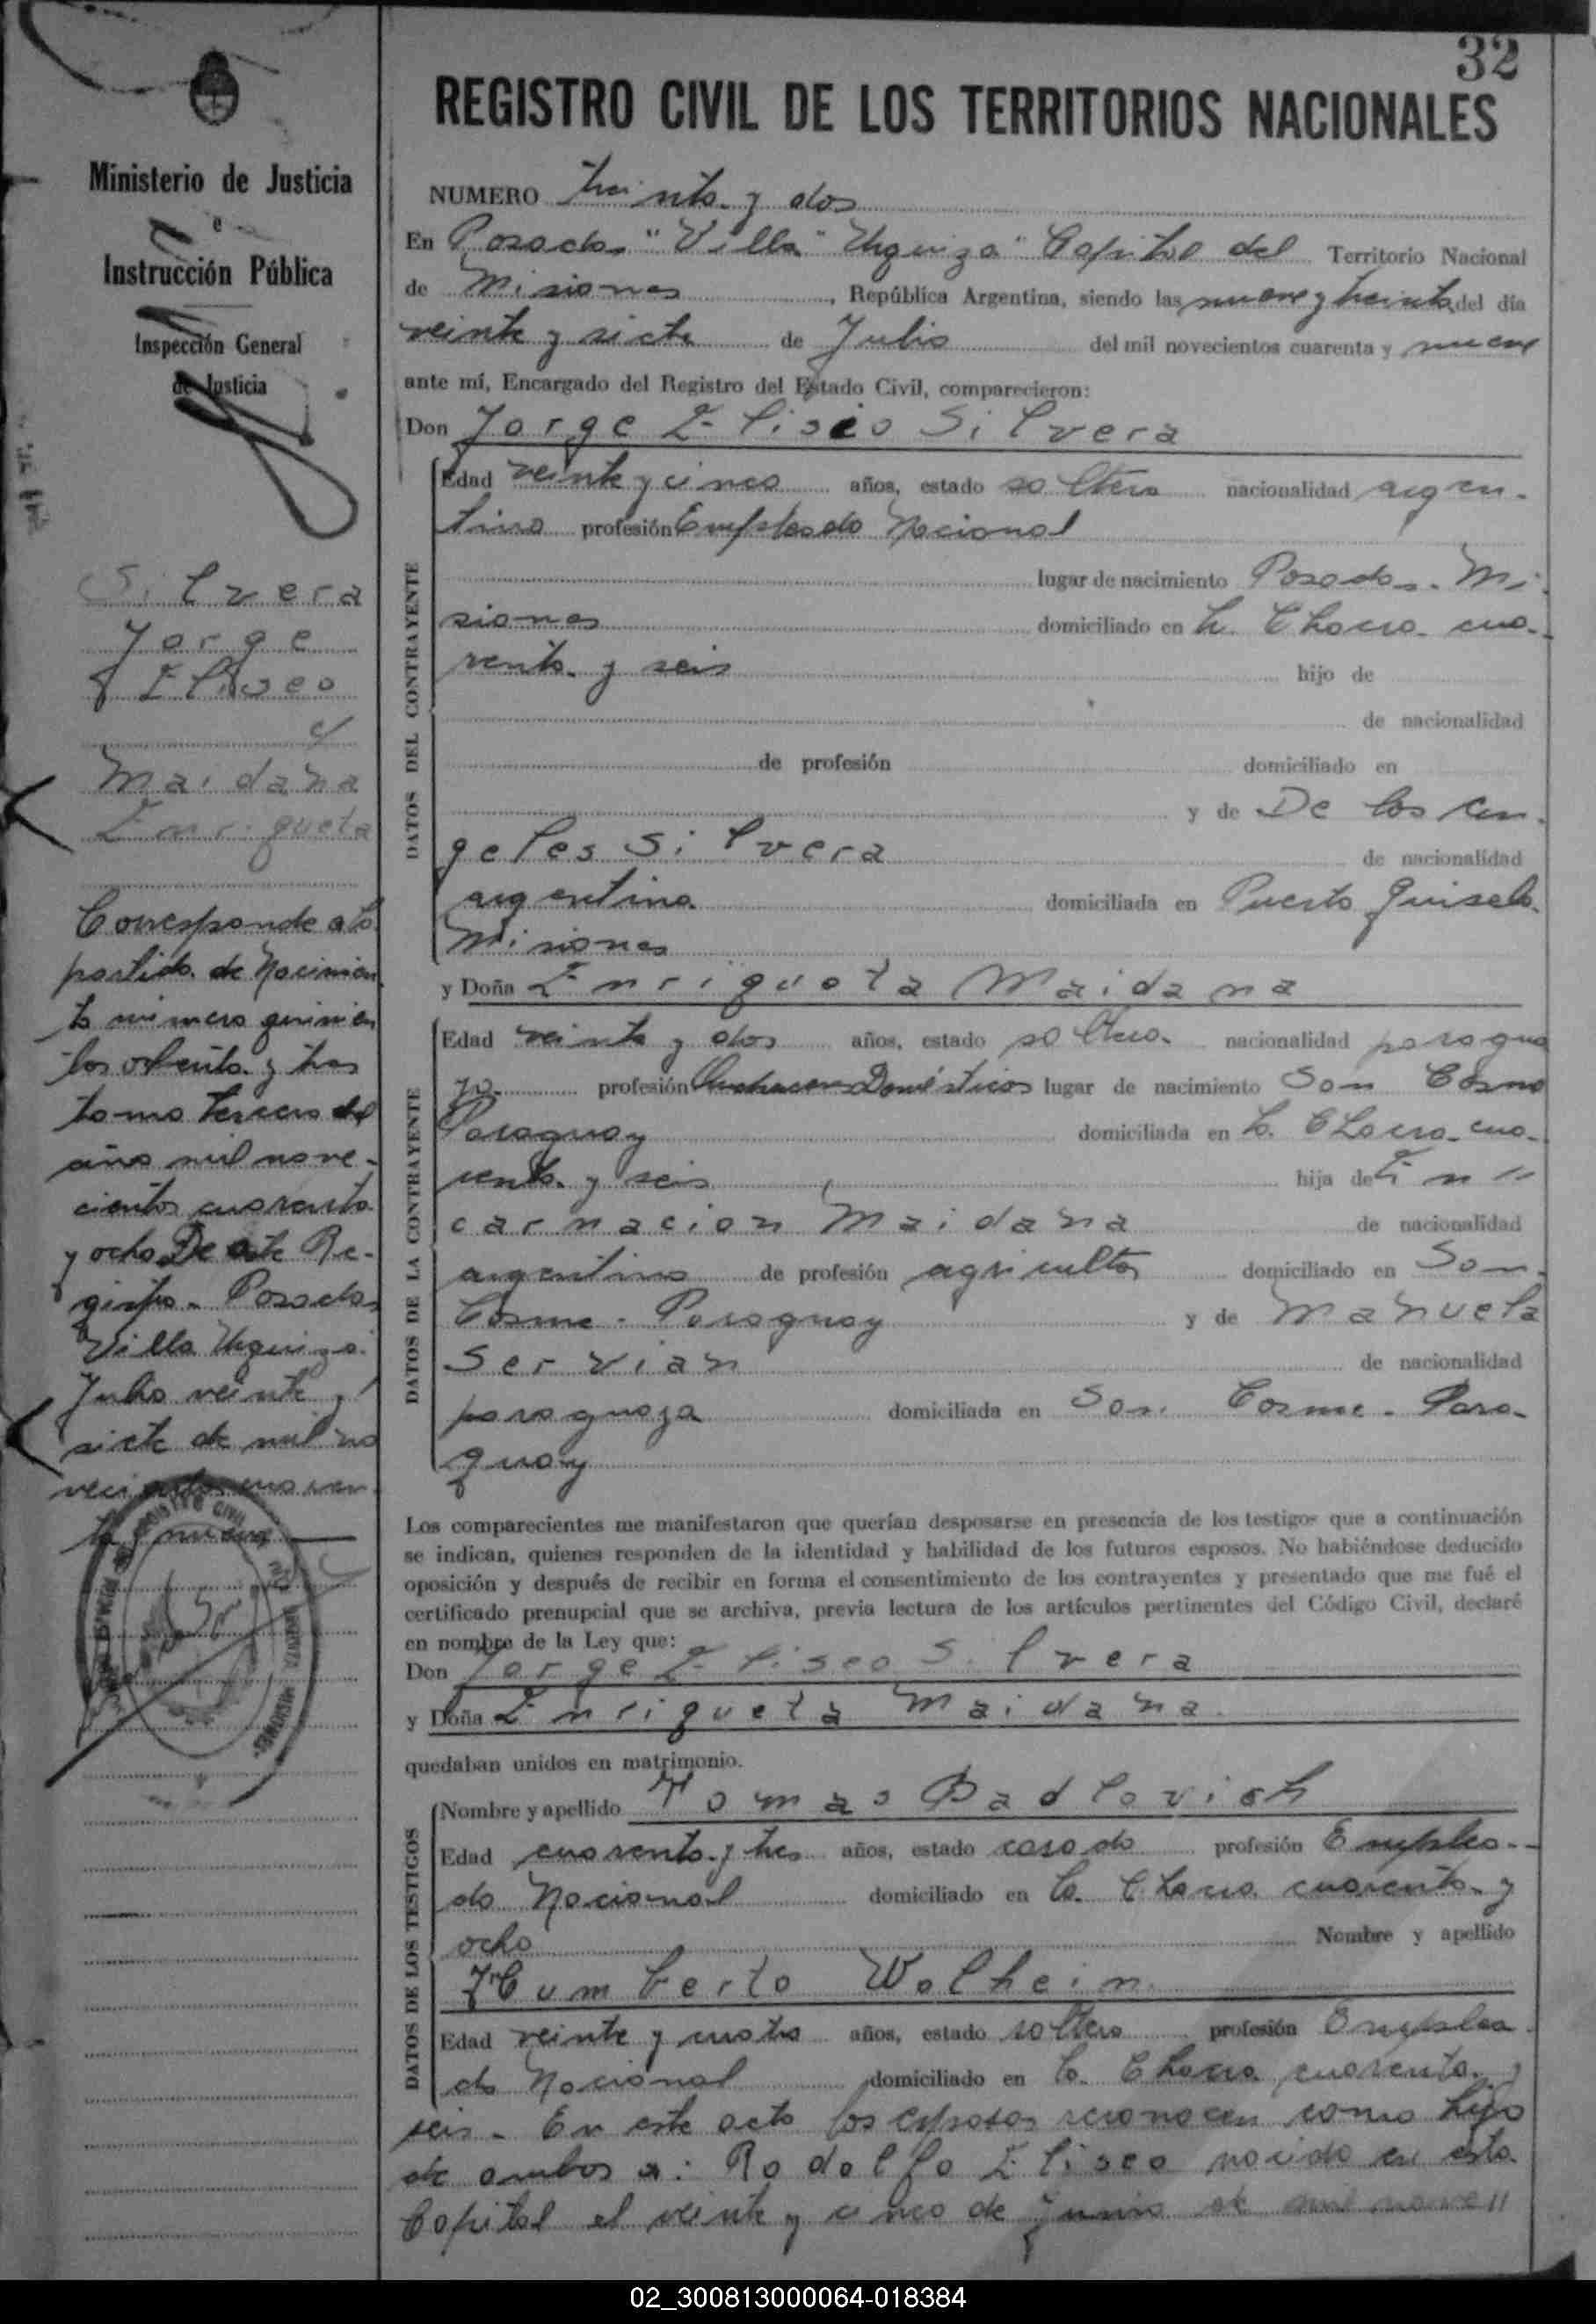 32
REGISTRO CIVIL DE LOS TERRITORIOS NACIONALES
Ministerio de Justicia
e
Instrucción Pública
Inspección General
de Justicia
Silvera
Jorge
Eliseo
c/
Maidana
Enriqueta
Corresponde a la
partida de Nacimien
to número quinien
tos ochenta y tres
tomo tercero del
año mil nove-
cientos cuarenta
y ocho De este Re-
gistro - Posadas
Villa Urquiza
Julio veinte y
siete de mil no
vecientos cuaren
ta y nueve
NUMERO treinta y dos
En Posadas "Villa Urquiza" Capital del Territorio Nacional
de Misiones, República Argentina, siendo las nueve y treinta del día
veinte y siete de Julio del mil novecientos cuarenta y nueve
ante mí, Encargado del Registro del Estado Civil, comparecieron:
Don Jorge Eliseo Silvera
DATOS DEL CONTRAYENTE
Edad veinte y cinco años, estado soltero nacionalidad argen-
tino profesión Empleado Nacional
lugar de nacimiento Posadas - Mi-
siones domiciliado en la Chacra cua-
renta y seis hijo de
de nacionalidad
de profesión domiciliado en
y de De los An-
geles Silvera de nacionalidad
argentina domiciliada en Puerto
Misiones
y Doña Enriqueta Maidana
DATOS DE LA CONTRAYENTE
Edad veinte y dos años, estado soltera nacionalidad paragua
ya profesión Domésticos lugar de nacimiento San Cosme
Paraguay domiciliada en la Chacra cua-
renta y seis hija de En //
carnacion Maidana de nacionalidad
argentino de profesión agricultor domiciliado en San
Cosme - Paraguay y de Manuela
Servian de nacionalidad
paraguaya domiciliada en San Cosme - Para-
guay
Los comparecientes me manifestaron que querían desposarse en presencia de los testigos que a continuación
se indican, quienes responden de la identidad y habilidad de los futuros esposos. No habiéndose deducido
oposición y después de recibir en forma el consentimiento de los contrayentes y presentado que me fué el
certificado prenupcial que se archiva, previa lectura de los artículos pertinentes del Código Civil, declaré
en nombre de la Ley que:
Don Jorge Eliseo Silvera
y Doña Enriqueta Maidana
quedaban unidos en matrimonio.
DATOS DE LOS TESTIGOS
Nombre y apellido Tomas Badlovich
Edad cuarenta y tres años, estado casado profesión Emplea-
do Nacional domiciliado en la Chacra cuarenta y
ocho Nombre y apellido
Humberto Wolhein
Edad veinte y cuatro años, estado soltero profesión Emplea
do Nacional domiciliado en la Chacra cuarenta y
seis - En este acto los esposos reconocen como hijo
de ambos a: Rodolfo Eliseo nacido en esta
Capital el veinte y cinco de Junio de mil nove//
02_300813000064-018384